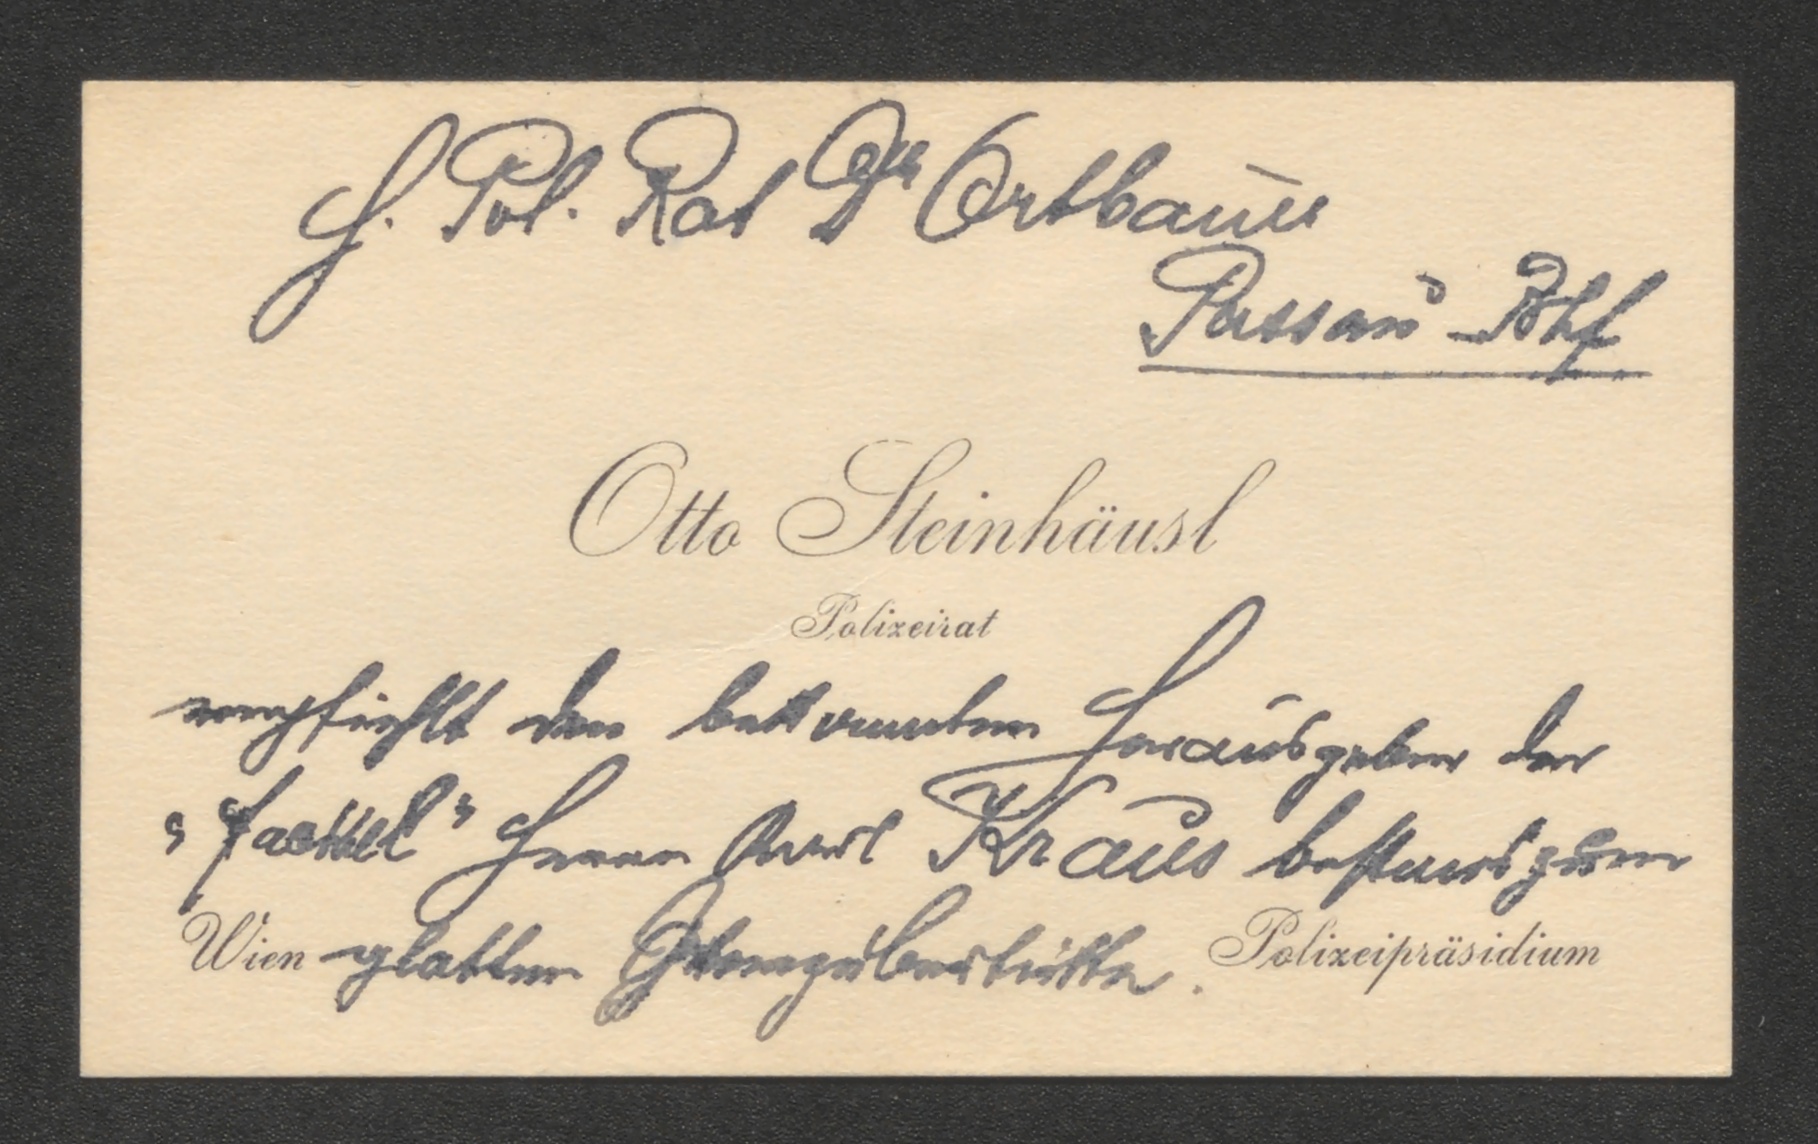 H. Pol. Rat Dr Ortbauer
Passau Bhf
Otto Steinhäusl
Polizeirat
empfiehlt den bekannten Herausgeber der
„Fackel“ Herrn Karl Kraus bestens zum
Wien glatten Grenzübertritte. Polizeipräsidium